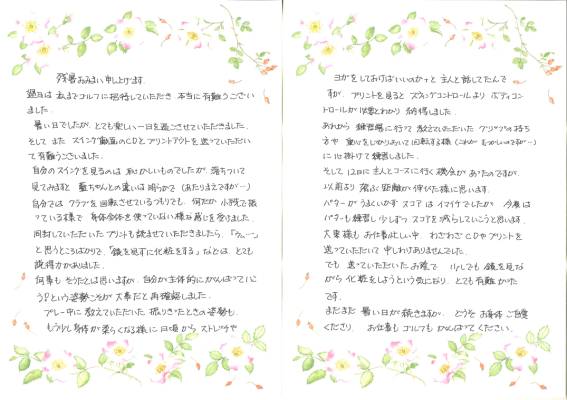 残暑お見まい申し上げます。
過日は 私までゴルフに招待していただき 本当に有難うござい
ました。
暑い日でしたが、とても楽しい一日を過ごさせていただきました。
そして また スイング動画のCDとプリントアウトを送っていただい
て有難うございました。
自分のスイングを見るのは 恥かしいものでしたが 落ちついて
見てみますと 藍ちゃんとの違いは明らかで (あたりまえですが…)
自分では クラブを回転させているつもりでも、何だか 小手先で振
っている様で 身体全体を使っていない様な感じを受けました。
同封していただいた プリントも読ませていただきましたら、「う〜ん」
と思うところばかりで、「鏡を見ずに化粧をする」などは、とても
説得力がありました。
何事も そうだとは思いますが、自分が主体的にがんばってい
こう!という姿勢こそが 大事だと 再確認しました。
プレー中に 教えていただいた 振りきったときの姿勢も、
もう少し身体が柔らくなる様に 日頃から ストレッチや
ヨガをしておけばいいのかナ と 主人と話してたんで
すが、プリントを見ると スウィングコントロールより ボディコン
トロールが 大事とわかり 納得しました。
あれから 練習場に行って 教えていただいた グリップの持ち
方や 重心をしっかりおいて回転する様 (これが むずかしいのですが…)
に 心掛けて練習しました。
そして 12日に 主人とコースに行く機会が あったのですが、
以前より 飛ぶ 距離が 伸びた様に思います。
パターが うまくいかず スコアは イマイチでしたが 今後は
パターも練習し 少しずつ スコアを 減らしていこうと思います。
大東様も お仕事お忙しい中、わざわざ CDやプリントを
送っていただいて 申しわけありませんでした。
でも 送っていただいた お陰で 少しでも 鏡を見な
がら 化粧をしようという気になり とても有難かった
です。
まだまだ 暑い日が 続きますが、どうぞ お身体ご自愛
くださり、お仕事もゴルフも がんばってください。